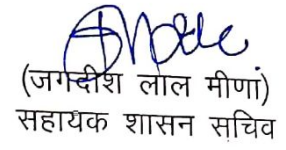 (जगदीश लाल मीणां)
सहायक शासन सचिव